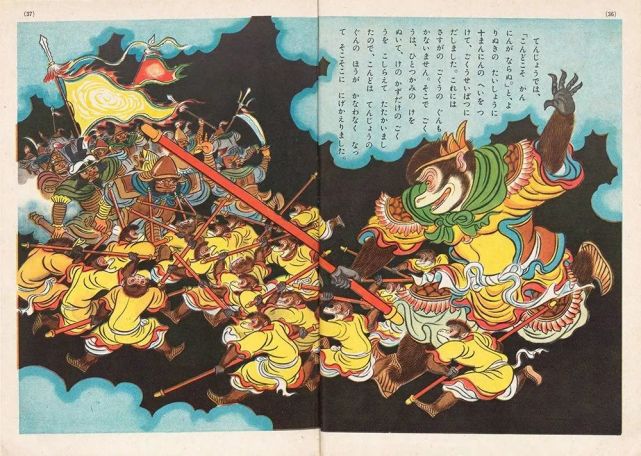 (36)
てんじょうでは、
「こんどこそ かん
にんが ならぬ。」と、よ
りぬきの たいしょうに
十まんにんの へいをつ
けて、ごくうせいばつに
だしました。これには
さすがの ごくうの ぐんも、
かないません。そこで ごく
うは、ひとつかみの けを
ぬいて、けのかずだけの ごく
うを こしらえて たたかいまし
たので、こんどは てんじょうの
ぐんの ほうが かなわなく なっ
て そこそこに にげかえりました。
(37)